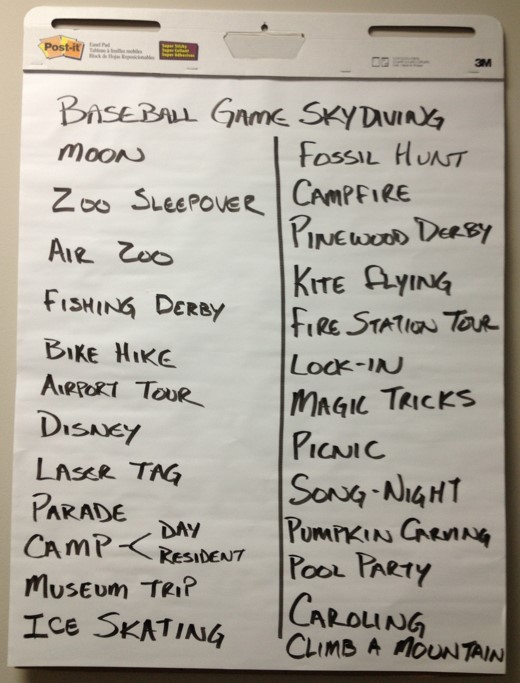 Post-it
Easel Pad
Tableau à feuilles mobiles
Block de Hojas Reposicionables
Super Sticky
3M
BASEBALL GAME SKYDIVING
MOON
ZOO SLEEPOVER
AIR ZOO
FISHING DERBY
BIKE HIKE
AIRPORT TOUR
DISNEY
LASER TAG
PARADE
CAMP < DAY
RESIDENT
MUSEUM TRIP
ICE SKATING
FOSSIL HUNT
CAMPFIRE
PINEWOOD DERBY
KITE FLYING
FIRE STATION TOUR
LOCK-IN
MAGIC TRICKS
PICNIC
SONG-NIGHT
PUMPKIN CARVING
POOL PARTY
CAROLING
CLIMB A MOUNTAIN